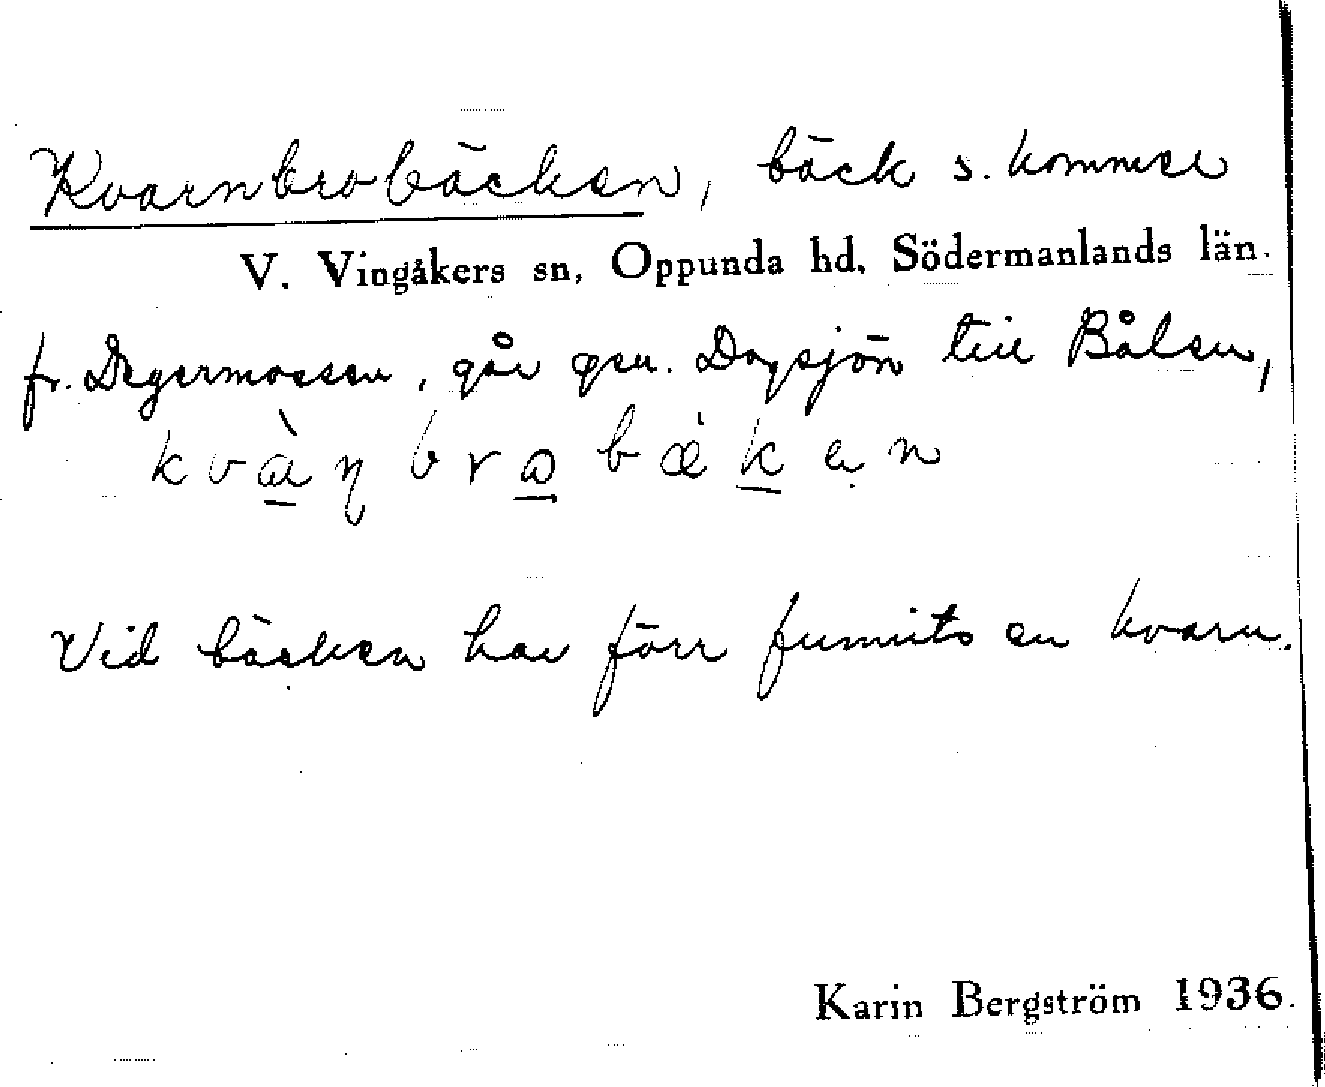 Kvarnbrobäcken, bäck s. kommer
V. Vingåkers sn, Oppunda hd, Södermanlands län.
fr. Degermossen, går gen. Dagsjön till Bålsen,
kvàn̥brobǽken
Vid bäcken har förr funnits en kvarn.
Karin Bergström 1936.